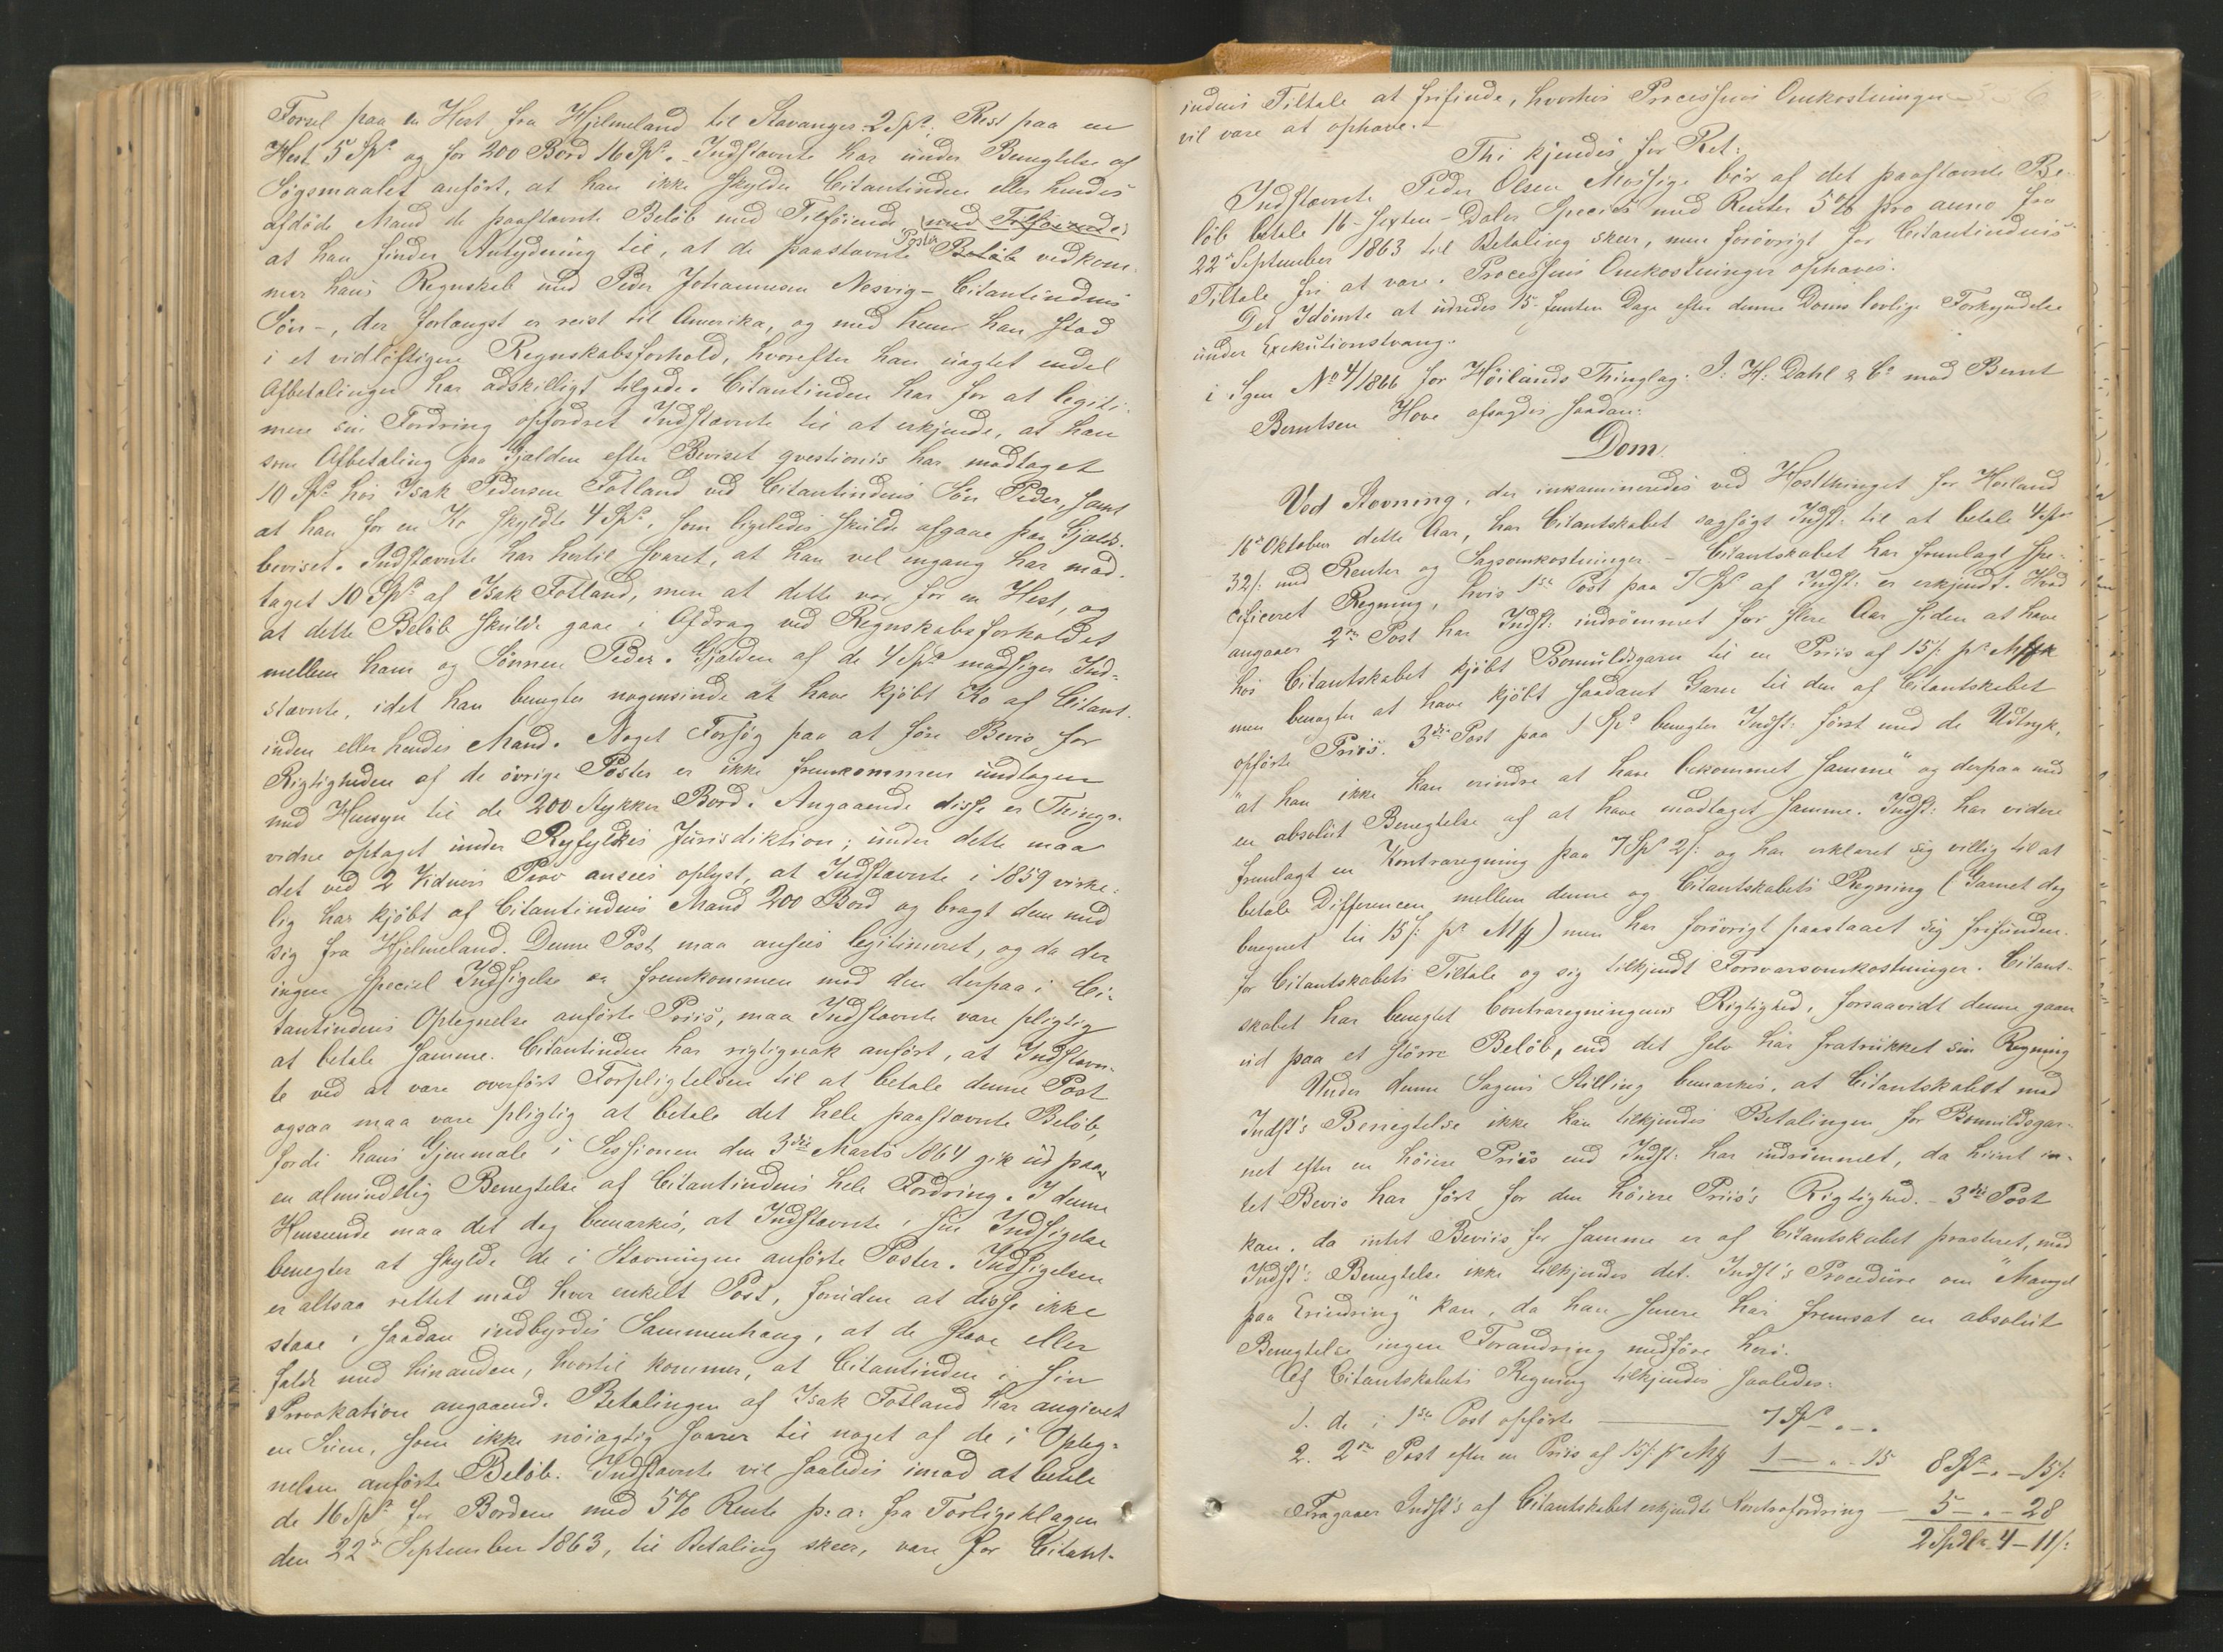 Forsel paa en Hest fra Hjelmeland til Stavanger 2 Spd. Rest paa en
Hest 5 Spd. og for 200 Bord 16 Spd. Indstævnte har under Benegtelse af
Sigsmaalet anført, at han ikke skylder Citantinden eller hendes
afdøde Mand de paastævnte Beløb med Tilføiende med Tilføiende
at han finder Antydning til, at de paastævnte Poster Beløb vedkom-
mer hans Regnskab med Peder Johannesen Nesvig – Citantindens
Søn –, der forlængst er reist til Amerika, og med hvem han stod
i et vidløftigere Regnskabsforhold, hvorefter han uagtet endel
Afbetalinger har adskilligt tilgode. Citantinden har for at legiti-
mere sin Fordring opfordret Indstævnte til at erkjende, at han
som Afbetaling paa Gjælden efter Beviset qvestionis har modtaget
10 Spd. hos Isak Pedersen Fotland ved Citantindens Søn Peder, samt
at han for en Ko skyldte 4 Spd., som ligeledes skulde afgaae paa Gjælds-
beviset. Indstævnte har hertil svaret, at han vel engang har mod-
taget 10 Spd. af Isak Fotland, men at dette var for en Hest, og
at dette Beløb skulde gaae i Afdrag ved Regnskabsforholdet
mellem ham og Sønnen Peder. Gjælden af de 4 Spd. modsiger Ind-
stævnte, idet han benegter nogensinde at have kjøbt Ko af Citant-
inden eller hendes Mand. Noget Forsøg paa at føre Bevis for
Rigtigheden af de øvrige Poster er ikke fremkommen undtagen
med Hensyn til de 200 Stykker Bord. Angaaende disse er Things-
vidne optaget under Ryfylkes Jurisdiktion; under dette maa
det ved 2 Vidners Prov ansees oplyst, at Indstævnte i 1859 virke-
lig har kjøbt af Citantindens Mand 200 Bord og bragt dem med
sig fra Hjelmeland. Denne Post maa ansees legitimeret, og da der
ingen speciel Indsigelse er fremkommen mod den derpaa i Ci-
tantindens Optegnelse anførte Priis, maa Indstævnte være pligtig
at betale samme. Citantinden har rigtignok anført, at Indstævn-
te ved at være overført Forpligtelsen til at betale denne Post
ogsaa maa være pligtig at betale det hele paastævnte Beløb,
fordi hans Gjenmæle i Sessionen den 3die Marts 1864 gik ud paa
en almindelig Benegtelse af Citantindens hele Fordring. I denne
Henseende maa det dog bemærkes, at Indstævnte i sin Indsigelse
benegter at skylde de i Stævningen anførte Poster. Indsigelsen
er altsaa rettet mod hver enkelt Post, foruden at disse ikke
staae i saadan indbyrdes Sammenhæng, at de staae eller
falde med hinanden, hvortil kommer, at Citantinden i sin
Provokation angaaende Betalingen af Isak Fotland har angivet
en Sum, som ikke nøiagtig svarer til noget af de i Opteg-
nelsen anførte Beløb. Indstævnte vil saaledes imod at betale
de 16 Spd. for Bordene med 5% Rente p: a: fra Forligsklagen
den 22de September 1863, til Betaling skeer, være for Citant-
indens Tiltale at frifinde, hvorhos Processens Omkostninger
vil være at ophæve. –
Thi kjendes for Ret:
Indstævnte Peder Olsen Mossige bør af det paastævnte Be-
løb betale 16 – Sexten – Daler Species med Renter 5% pro anno fra
22de September 1863 til Betaling skeer, men forøvrigt for Citantindens
Tiltale fri at være. Processens Omkostninger ophæves.
Det Idømte at udredes 15 – femten Dage efter denne Doms lovlige Forkyndelse
under Exekutionstvang.
i Sgen No 4/1866 for Høilands Thinglag: I. H. Dahl & Co mod Bernt
Berntsen Hove afsagdes saadan:
Dom.
Ved Stævning, der inkamineredes ved Høstthinget for Høiland
16de Oktober dette Aar, har Citantskabet sagsøgt Indst: til at betale 4 Spd
32 s. med Renter og Sagsomkostninger. – Citantskabet har fremlagt spe-
cificeret Regning, hvis 1ste Post paa 7 Spd af Indst: er erkjendt. Hvad
angaaer 2den Post har Indst: indrømmet for flere Aar siden at have
hos Citantskabet kjøbt Bomuldsgarn til en Priis af 15 s. pr Mk
men benegter at have kjøbt saadant Garn til den af Citantskabet
opførte Priis. 3die Post paa 1 Spd benegter Indst: først med de Udtryk,
"at han ikke kan erindre at have bekommet samme" og derpaa med
en absolut Benegtelse af at have modtaget samme. Indst: har videre
fremlagt en Kontraregning paa 7 Spd 2 s. og har erklæret sig villig til at
betale Differencen mellem denne og Citantskabets Regning (Garnet dog
beregnet til 15 s. pr Mk) men har forøvrigt paastaaet sig frifunden.
for Citantskabets Tiltale og sig tilkjendt Forsvarsomkostninger. Citant-
skabet har benegtet Contraregningens Rigtighed, forsaavidt denne gaaer
ud paa et større Beløb, end det selv har fratrukket sin Regning
Under denne Sagens Stilling bemærkes, at Citantskabet mod
Indst's Benegtelse ikke kan tilkjendes Betalingen for Bomuldsgar-
net efter en høiere Priis end Indst: har indrømmet, da hiint in-
tet Bevis har ført for den høiere Priis's Rigtighed. – 3die Post
kan, da intet Beviis for samme er af Citantskabet præsteret, mod
Indst's: Benegtelse ikke tilkjendes det. Indst's Procedure om "Mangel
paa Erindring" kan, da han senere har fremsat en absolut
Benegtelse ingen Forandring medføre heri.
Af Citantskabets Regning tilkjendes saaledes:
1. de i 1ste Post opførte 7 Spd – " – "
2. 2den Post efter en Priis af 15 s. pr Mk 1 – " – 15 8 Spd – " – 15 s.
Fragaaer Indst's af Citantskabet erkjendte Kontrafordring – 5 – " – 28
2 Spdlr – 4 – 11 s: